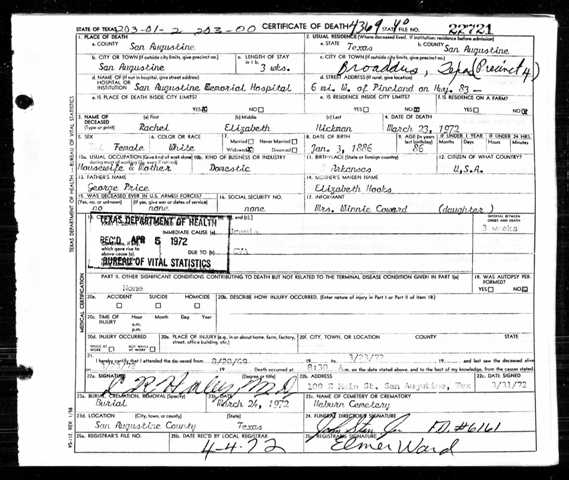 STATE OF TEXAS 203-01-2 203-00 CERTIFICATE OF DEATH STATE FILE NO. 22721
1. PLACE OF DEATH
2. USUAL RESIDENCE (Where deceased lived. If institution: residence before admission)
a. COUNTY San Augustine
a. STATE Texas b. COUNTY San Augustine
b. CITY OR TOWN (If outside city limits, give precinct no.) San Augustine
c. LENGTH OF STAY 3 wks.
c. CITY OR TOWN (If outside city limits, give precinct no.) Broaddus, Texas (Precinct 4)
d. NAME OF (If not in hospital, give street address) HOSPITAL OR INSTITUTION San Augustine Memorial Hospital
d. STREET ADDRESS (If rural, give location) 6 mi. W. of Pineland on Hwy. 83
e. IS PLACE OF DEATH INSIDE CITY LIMITS? YES NO
e. IS RESIDENCE INSIDE CITY LIMITS? YES NO
f. IS RESIDENCE ON A FARM? YES NO
3. NAME OF DECEASED (Type or print) (a) First Rachel (b) Middle Elizabeth (c) Last Hickman
4. DATE OF DEATH March 23, 1972
5. SEX Female
6. COLOR OR RACE White
7. Married Never Married Widowed Divorced
8. DATE OF BIRTH Jan. 3, 1886
9. AGE (In years last birthday) 86
IF UNDER 1 YEAR Months Days
IF UNDER 24 HRS. Hours Minutes
10a. USUAL OCCUPATION (Give kind of work done during most of working life, even if retired) Housewife & Mother
10b. KIND OF BUSINESS OR INDUSTRY Domestic
11. BIRTHPLACE (State or foreign country) Arkansas
12. CITIZEN OF WHAT COUNTRY? U.S.A.
13. FATHER'S NAME George Price
14. MOTHER'S MAIDEN NAME Elizabeth Hooks
15. WAS DECEASED EVER IN U.S. ARMED FORCES? (Yes, no or unknown) no none
16. SOCIAL SECURITY NO. none
17. INFORMANT Mrs. Minnie Coward (daughter)
TEXAS DEPARTMENT OF HEALTH
REC'D APR 5 1972
BUREAU OF VITAL STATISTICS
IMMEDIATE CAUSE (a)
INTERVAL BETWEEN ONSET AND DEATH
3 weeks
which gave rise to above cause
DUE TO
PART II. OTHER SIGNIFICANT CONDITIONS CONTRIBUTING TO DEATH BUT NOT RELATED TO THE TERMINAL DISEASE CONDITION GIVEN IN PART I(a)
None
19. WAS AUTOPSY PERFORMED? YES NO
20a. ACCIDENT SUICIDE HOMICIDE
20b. DESCRIBE HOW INJURY OCCURRED. (Enter nature of injury in Part I or Part II of item 18)
20c. TIME OF INJURY Hour Month Day Year a.m. p.m.
20d. INJURY OCCURRED WHILE AT WORK NOT WHILE AT WORK
20e. PLACE OF INJURY (e.g., in or about home, farm, factory, street, office building, etc.)
20f. CITY, TOWN, OR LOCATION COUNTY STATE
21. I hereby certify that I attended the deceased from 19 to 3/23/72 19 and last saw the deceased alive
Death occurred at m. on the date stated above, and to the best of my knowledge, from the causes stated
22a. SIGNATURE (Degree or title) M.D.
22b. ADDRESS San Augustine, Tex
22c. DATE SIGNED 3/31/72
23a. BURIAL, CREMATION, REMOVAL (Specify) Burial
23b. DATE March 24, 1972
23c. NAME OF CEMETERY OR CREMATORY Heburn Cemetery
23d. LOCATION (City, town, or county) (State) San Augustine County Texas
24. FUNERAL DIRECTOR'S SIGNATURE F.D. #6161
25a. REGISTRAR'S FILE NO.
25b. DATE REC'D BY LOCAL REGISTRAR 4-4-72
25c. REGISTRAR'S SIGNATURE Elmer Ward
TEXAS DEPARTMENT OF HEALTH - BUREAU OF VITAL STATISTICS
MEDICAL CERTIFICATION